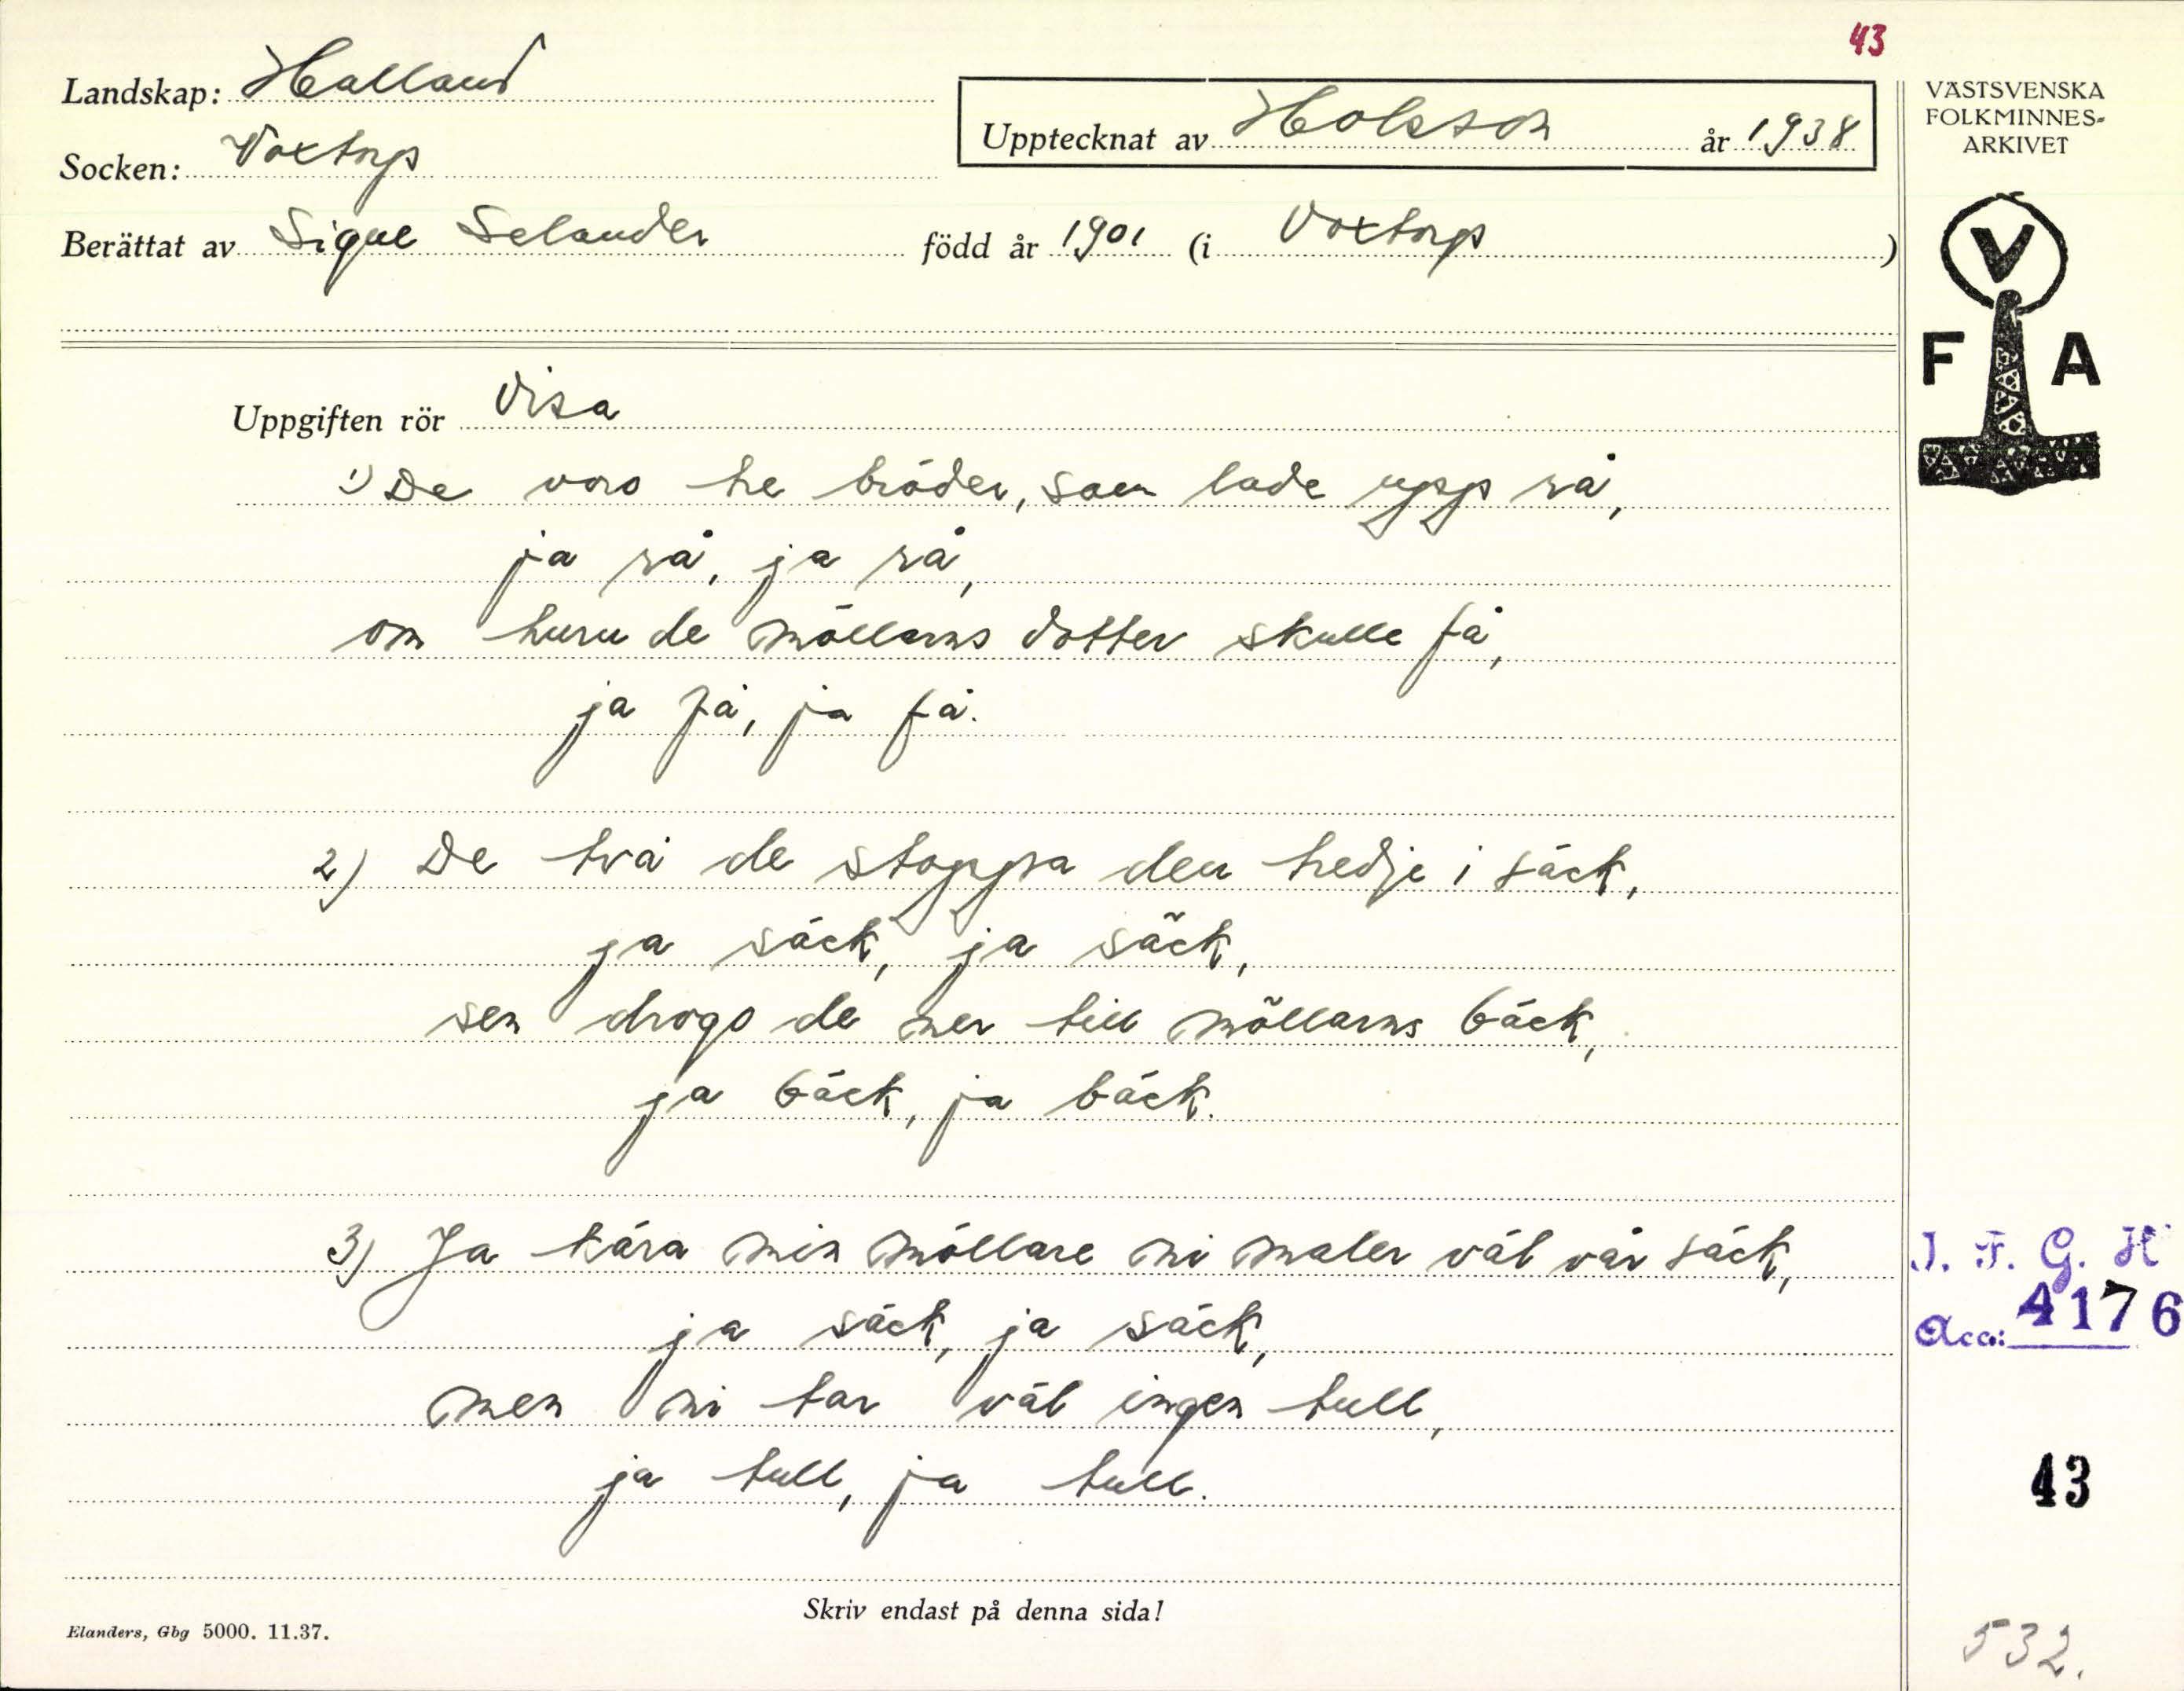 43
Landskap: Halland
Socken: Voxtorp
Upptecknat av Holsson år 1938
Berättat av Signe Selander född år 1901 (i Voxtorp)
VÄSTSVENSKA
FOLKMINNES-
ARKIVET
V
F A
Uppgiften rör Visa
1) De voro tre bröder, som lade upp rå,
ja rå, ja rå,
om huru de möllarns dotter skulle få,
ja få, ja få.
2) De två de stoppa den tredje i säck,
ja säck, ja säck,
sen drogo de ner till möllarns bäck,
ja bäck, ja bäck.
3) Ja kära min möllare ni maler väl vår säck,
ja säck, ja säck,
men ni tar väl ingen tull,
ja tull, ja tull.
I. F. G. H
Acc: 4176
43
Skriv endast på denna sida!
Elanders, Gbg 5000. 11.37.
532.